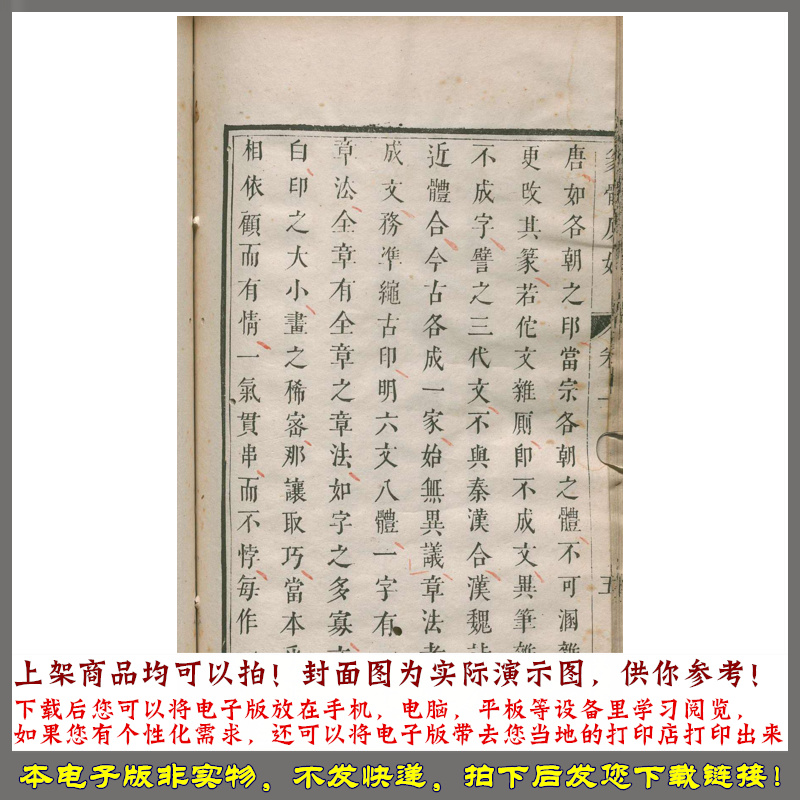 唐如各朝之印當宗各朝之體不可溷雜
更改其篆若佗文雜廁即不成文異筆雜
不成字譬之三代文不與秦漢合漢魏
近體合今古各成一家始無異議章法
成文務準繩古印明六文八體一字有
章法全章有全章之章法如字之多寡
白印之大小畫之稀密那讓取巧當本
相依顧而有情一氣貫串而不悖每作
上架商品均可以拍！封面图为实际演示图，供你参考！
下载后您可以将电子版放在手机，电脑，平板等设备里学习阅览，
如果您有个性化需求，还可以将电子版带去您当地的打印店打印出来
本电子版非实物，不发快递，拍下后发您下载链接！